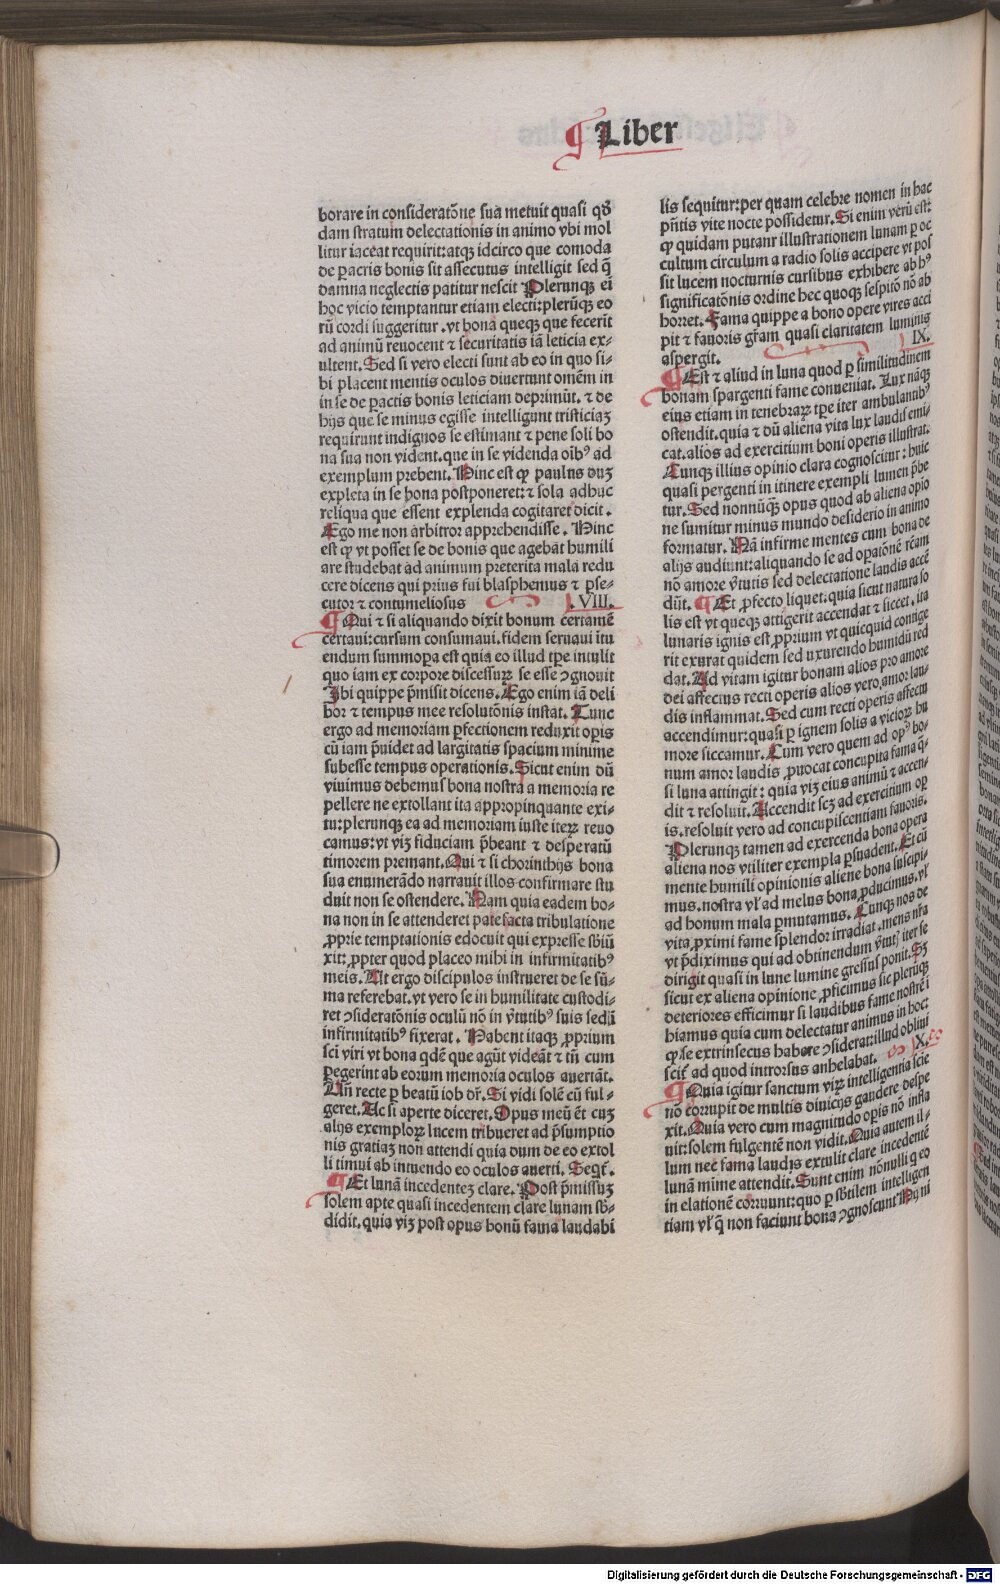 ¶ Liber
borare in consideratōne suā metuit quasi qđ
dam stratum delectationis in animo vbi mol
litur iaceat requirit:atqꝫ idcirco que comoda
de ꝑacris bonis sit assecutus intelligit sed q̄
damna neglectis patitur nescit Plerunqꝫ eī
hoc vicio temptantur etiam electi:plerūqꝫ eo
rū cordi suggeritur.vt bona queqꝫ que fecerīt
ad animū reuocent ⁊ securitatis iā leticia ex-
ultent.Sed si vero electi sunt ab eo in quo si-
bi placent mentis oculos diuertunt omēm in
in se de ꝑactis bonis leticiam deprimūt. ⁊ de
hijs que se minus egisse intelligunt tristiciaꝫ
requirunt indignos se estimant ⁊ pene soli bo
na sua non vident.que in se videnda oībꝰ ad
exemplum prebent.Hinc est ꝙ paulus duꝫ
expleta in se bona postponeret:⁊ sola adhuc
reliqua que essent explenda cogitaret dicit.
Ego me non arbitror apprehendisse. Hinc
est ꝙ vt posset se de bonis que agebāt humili
are studebat ad animum preterita mala redu
cere dicens qui prius fui blasphemus ⁊ ꝑse-
cutor ⁊ contumeliosus .VIII.
¶ Qui ⁊ si aliquando dixit bonum certamē
certaui:cursum consumaui.fidem seruaui ītu
endum summoꝑa est quia eo illud tꝑe intulit
quo iam ex corpore discessuꝝ se esse ꝯgnouit
Ibi quippe p̄misit dicens.Ego enim iā deli
bor ⁊ tempus mee resolutōnis instat.Tunc
ergo ad memoriam ꝑfectionem reduxit oꝑis
cū iam p̄uidet ad largitatis spacium minime
subesse tempus operationis.Sicut enim dū
viuimus debemus bona nostra a memoria re
pellere ne extollant ita appropinquante exi-
tu:plerunqꝫ ea ad memoriam iuste iteꝝ reuo
camus:vt viꝫ fiduciam p̄beant ⁊ desperatū
timorem premant.Qui ⁊ si chorinthijs bona
sua enumerādo narrauit illos confirmare stu
duit non se ostendere.Nam quia eadem bo-
na non in se attenderet patefacta tribulatione
ꝓprie temptationis edocuit qui expresse sƀiū
xit:ꝓpter quod placeo mihi in infirmitatibꝰ
meis.Ut ergo discipulos instrueret de se sū-
ma referebat.vt vero se in humilitate custodi-
ret ꝯsideratōnis oculū nō in v̄tutibꝰ suis sedū
infirmitatibꝰ fixerat. Habent itaqꝫ ꝓprium
sci viri vt bona qdē que agūt videāt ⁊ tn̄ cum
ꝑegerint ab eorum memoria oculos auertāt.
Un̄ recte ꝑ beatū iob dr̄.Si vidi solē cū ful-
geret.Ac si aperte diceret.Opus meū ēt cuꝫ
alijs exemploꝝ lucem tribueret ad p̄sumptio
nis gratiaꝫ non attendi quia dum de eo extol
li timui ab intuendo eo oculos auerti. Seqt̄.
¶ Et lunā incedenteꝫ clare.Post p̄missuꝫ
solem apte quasi incedentem clare lunam sƀ-
didit.quia viꝫ post opus bonū fama laudabi
lis sequitur:per quam celebre nomen in hac
pn̄tis vite nocte possidetur.Si enim verū est:
ꝙ quidam putant illustrationem lunam ꝑ oc
cultum circulum a radio solis accipere vt pos
sit lucem nocturnis cursibus exhibere ab hꝰ
significatōnis ordine hec quoqꝫ sesptiō nō ab
horret.Fama quippe a bono opere vires acci
pit ⁊ fauoris gr̄am quasi claritatem luminis
aspergit. IX.
¶ Est ⁊ aliud in luna quod ꝑ similitudinem
bonam spargenti fame conueniat.Lux nāqꝫ
eius etiam in tenebraꝝ tꝑe iter ambulantibꝰ
ostendit.quia ⁊ dū aliena vita lux laudis emi-
cat.alios ad exercitium boni operis illustrat.
Cunqꝫ illius opinio clara cognoscitur:huic
quasi pergenti in itinere exempli lumen p̄be
tur.Sed nonnūqꝫ opus quod ab aliena opio
ne sumitur minus mundo desiderio in animo
formatur.Nā infirme mentes cum bona de
alijs audiunt:aliquando se ad opaīonē rēam
nō amore v̄tutis sed delectatione laudis accē
dūt.¶ Et ꝓfecto liquet.quia sicut natura so
lis est vt queqꝫ attigerit accendat ⁊ siccet.ita
lunaris ignis est ꝓprium vt quicquid contige
rit exurat quidem sed uxurendo humidū red
dat.Ad vitam igitur bonam alios pro amore
dei affectus recti operis alios vero.amor lau-
dis inflammat.Sed cum recti operis affectu
accendimur:quasi ꝑ ignem solis a vicioꝝ hu
more siccamur.Cum vero quem ad opꝰ bo-
num amor laudis ꝓuocat concupita fama q̄-
si luna attingit:quia viꝫ eius animū ⁊ accen-
dit ⁊ resoluit.Accendit scꝫ ad exercitium oꝑ
is.resoluit vero ad concupiscentiam fauoris.
Plerunqꝫ tamen ad exercenda bona opera
aliena nos vtiliter exempla ꝑsuadent.Et cū
mente humili opinionis aliene bona suscipi-
mus.nostra vl̄ ad melus bona ꝓducimus.vl̄
ad bonum mala ꝑmutamus. Cunqꝫ nos de
vita ꝓximi fame splendor irradiat.mens nr̄a
vt p̄diximus qui ad obtinendum v̄tut̄ iter se
dirigit quasi in lune lumine gressus ponit.Sꝫ
sicut ex aliena opinione ꝓficimus sic plerūqꝫ
deteriores efficimur si laudibus fame nostre i
hiamus quia cum delectatur animus in hoc:
ꝙ se extrinsecus habere ꝯsiderat:illud oblini
scit̄ ad quod introrsus anhelabat. X.
¶ Quia igitur sanctum viꝝ intelligentia scie
nō corrupit de multis diuicijs gaudere despe
xit.Quia vero cum magnitudo oꝑis nō infla
uit:solem fulgentē non vidit.Quia autem il-
lum nec fama laudis extulit clare incedentē
lunā mime attendit.Sunt enim nōnulli q̄ eo
in elationē corruunt:quo ꝑ sƀtilem intelligen
tiam vl̄ q̄ non faciunt bona ꝯgnoscunt Hij ni